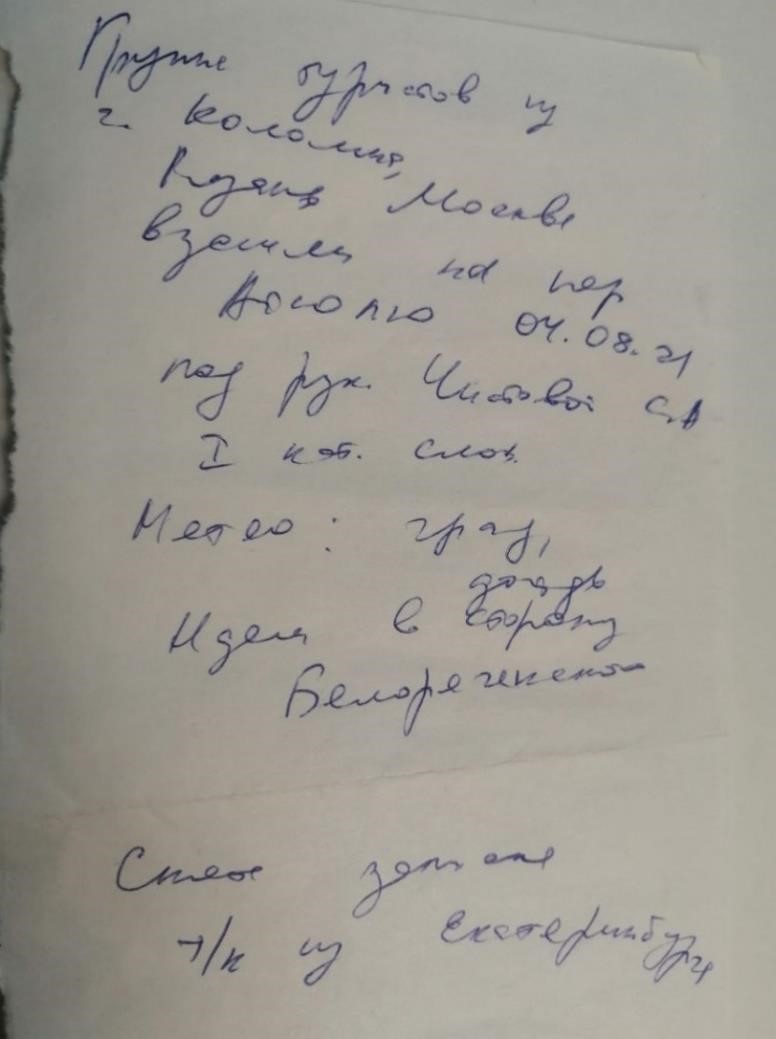 Группа туристов из
г. Коломна,
Рязань, Москва
взошли на пер
04.08.21
под рук. Чистовой С.А
I кат. слож.
Метео: град,
дождь
Идем в сторону
Белореченской
Снята записка
т/к из Екатеринбурга